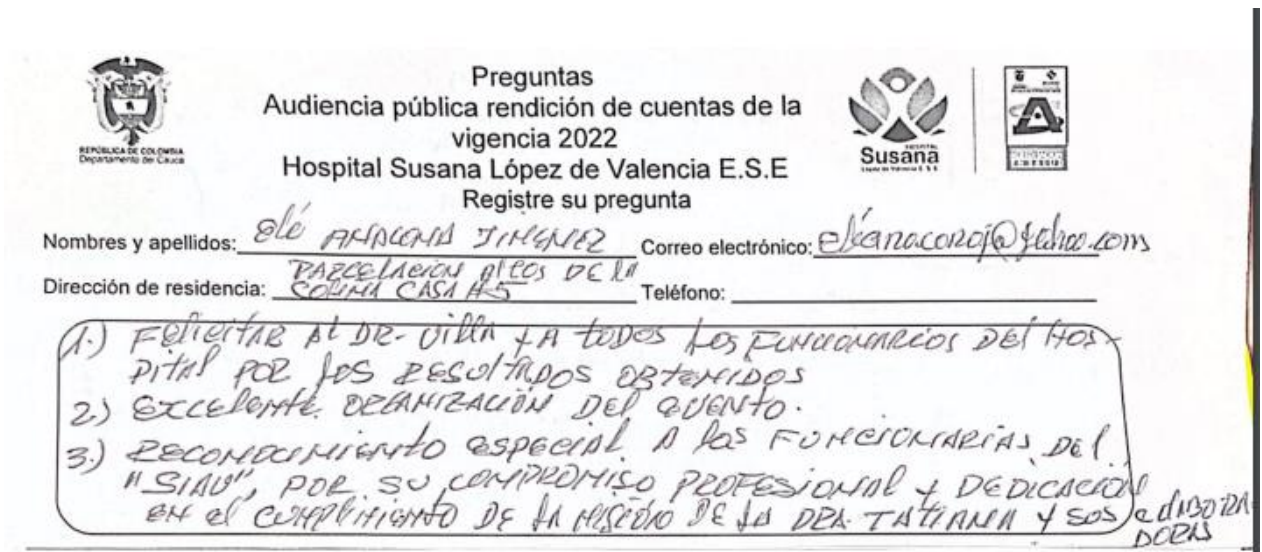 Preguntas
Audiencia pública rendición de cuentas de la
vigencia 2022
Hospital Susana López de Valencia E.S.E
Registre su pregunta
REPÚBLICA DE COLOMBIA
Departamento del Cauca
HOSPITAL
Susana
López de Valencia E.S.E
Nombres y apellidos: JIMENEZ Correo electrónico:
Dirección de residencia: PARCELACION ALTOS DE LA
COLINA CASA #5 Teléfono:
1.) FELICITAR AL DR. VILLA Y A TODOS LOS FUNCIONARIOS DEL HOS-
PITAL POR LOS RESULTADOS OBTENIDOS
2.) EXCELENTE ORGANIZACIÓN DEL EVENTO.
3.) RECONOCIMIENTO ESPECIAL A LAS FUNCIONARIAS DEL
"SIAU", POR SU COMPROMISO PROFESIONAL Y DEDICACION
EN EL CUMPLIMIENTO DE LA MISION DE LA DRA. TATIANA Y SUS COLABORA-
DORAS